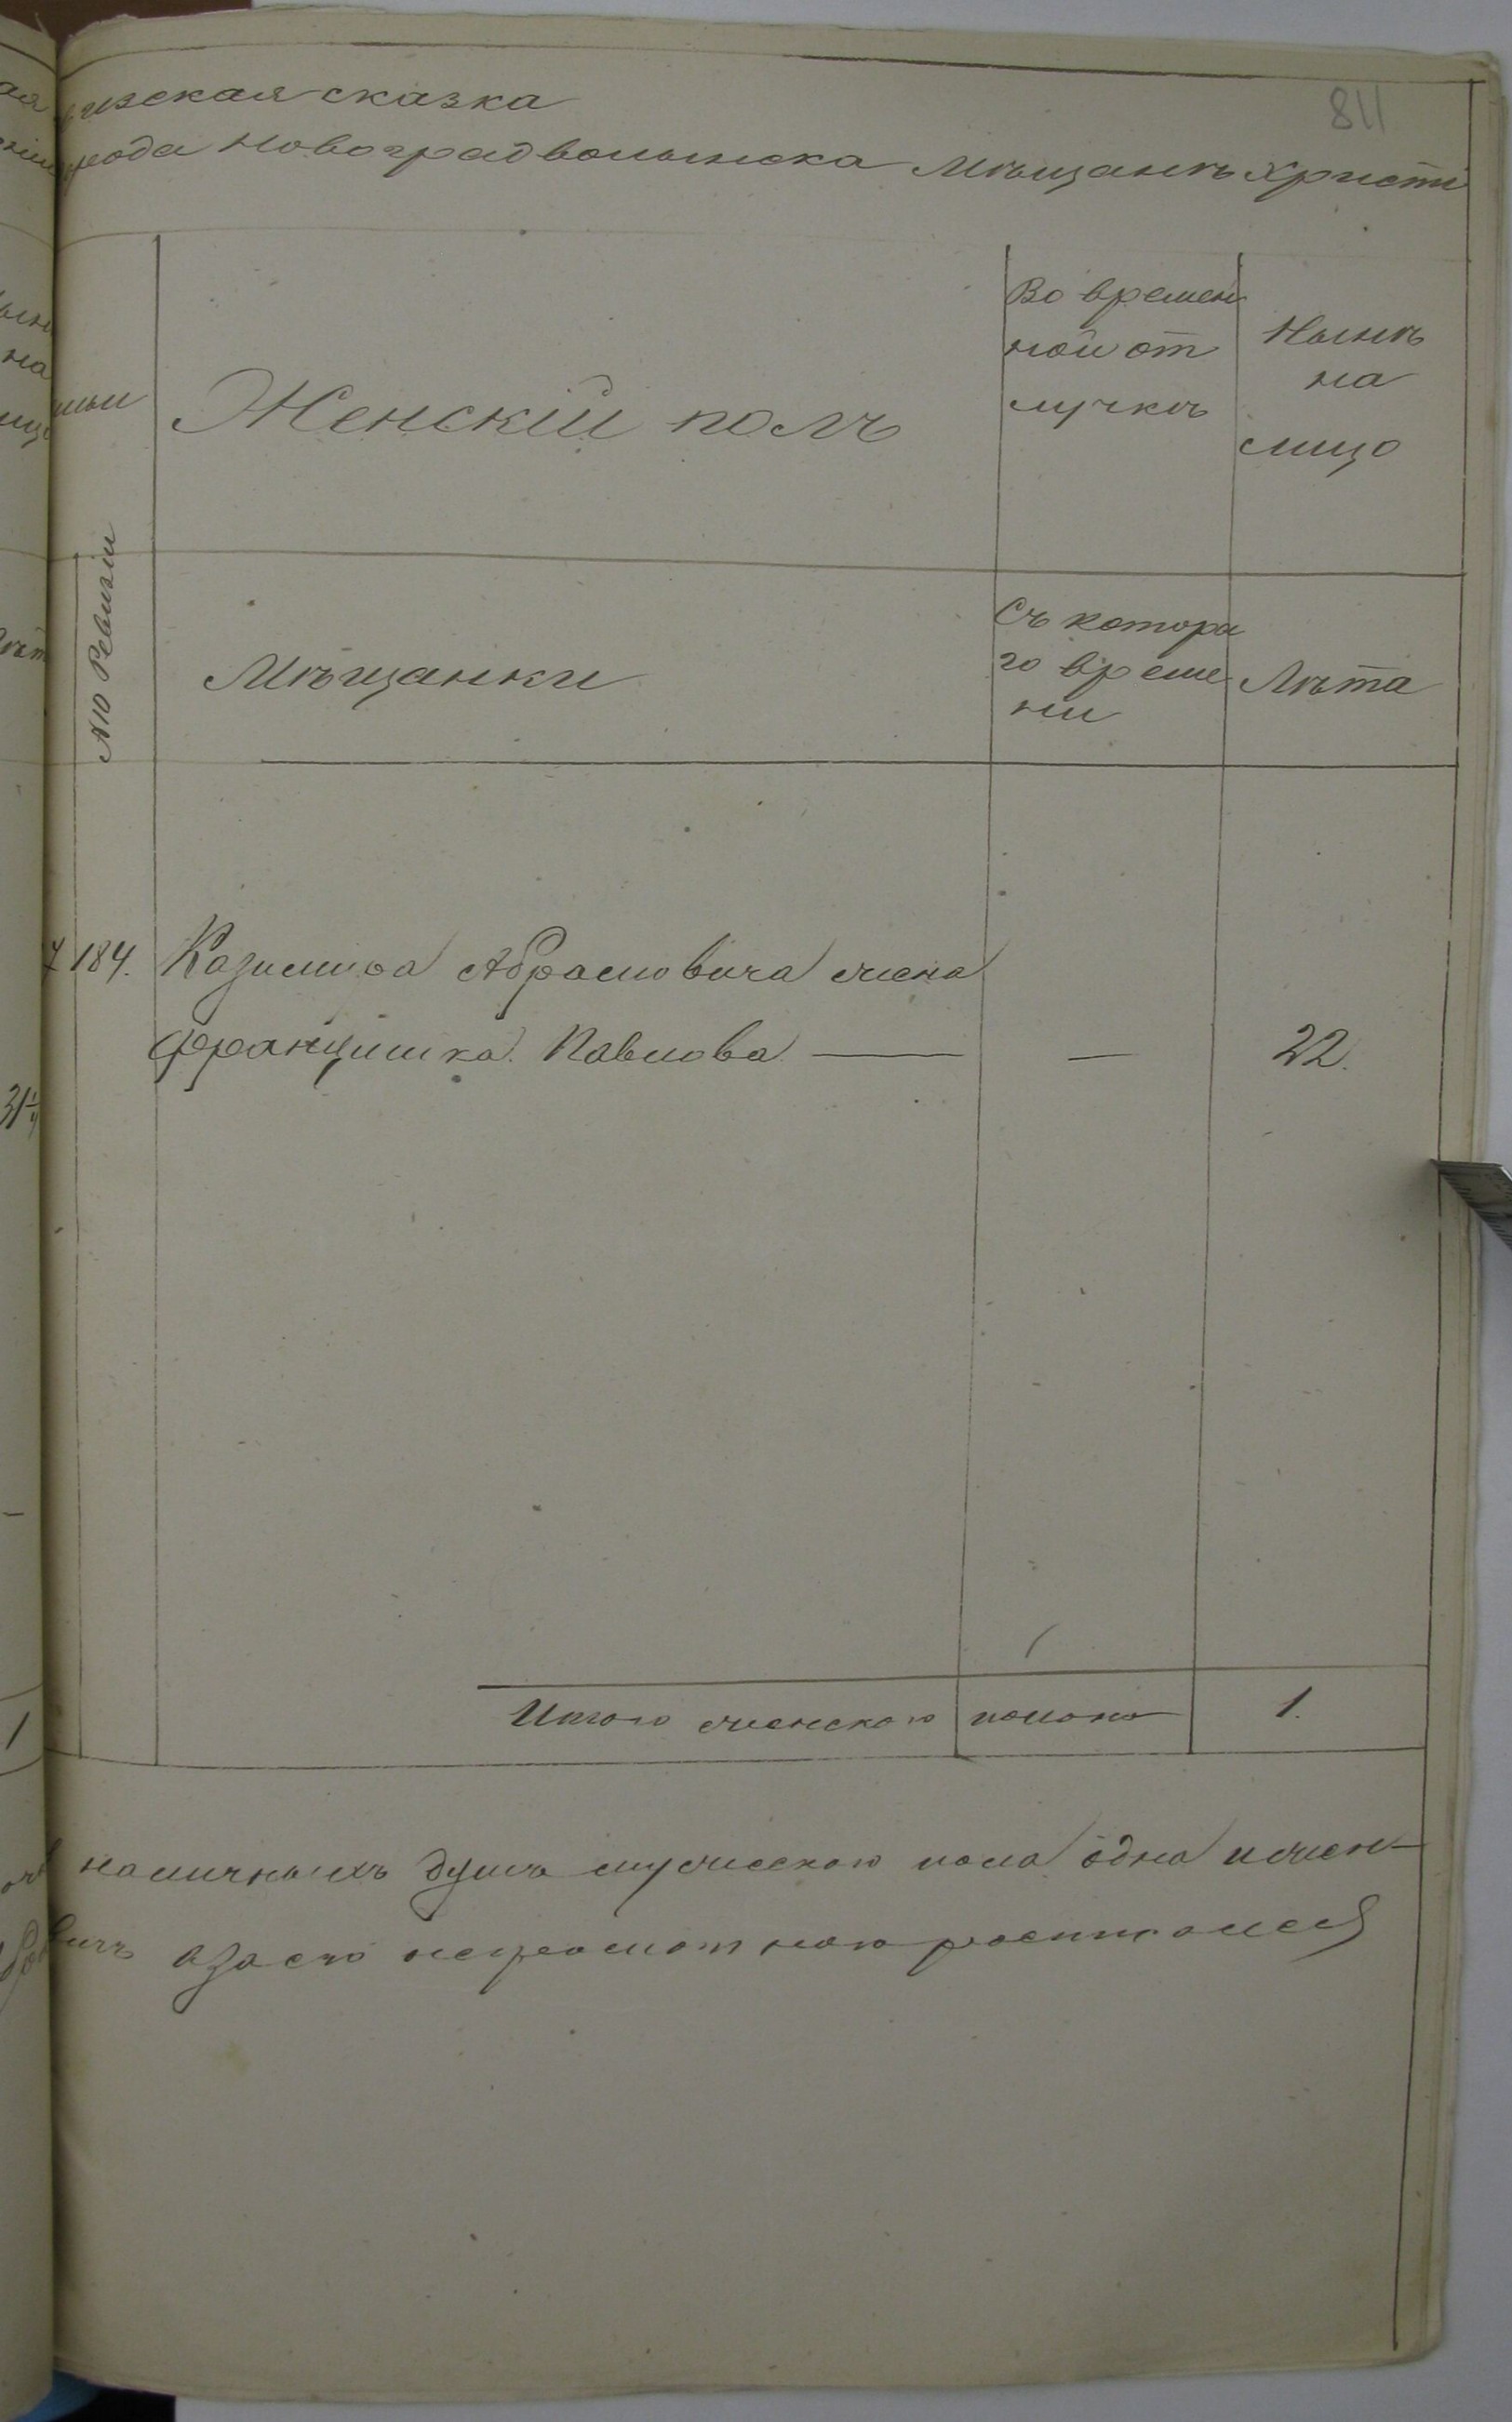 811
изская сказка
рода Новоградволынска Мѣщанъ Христи
Женскій полъ
Во времен
ной от
лучкѣ
Нынѣ
на
лицо
№ 10 Ревизіи
Мѣщанки
Съ котора
го време
ни
Лѣта
184. Казимира Абрамовича жена
Францишка Павлова — — 22.
Итого женскаго пола на 1.
наличныхъ душъ мужескаго пола одна и жен-
а за его неграмотнаго росписался